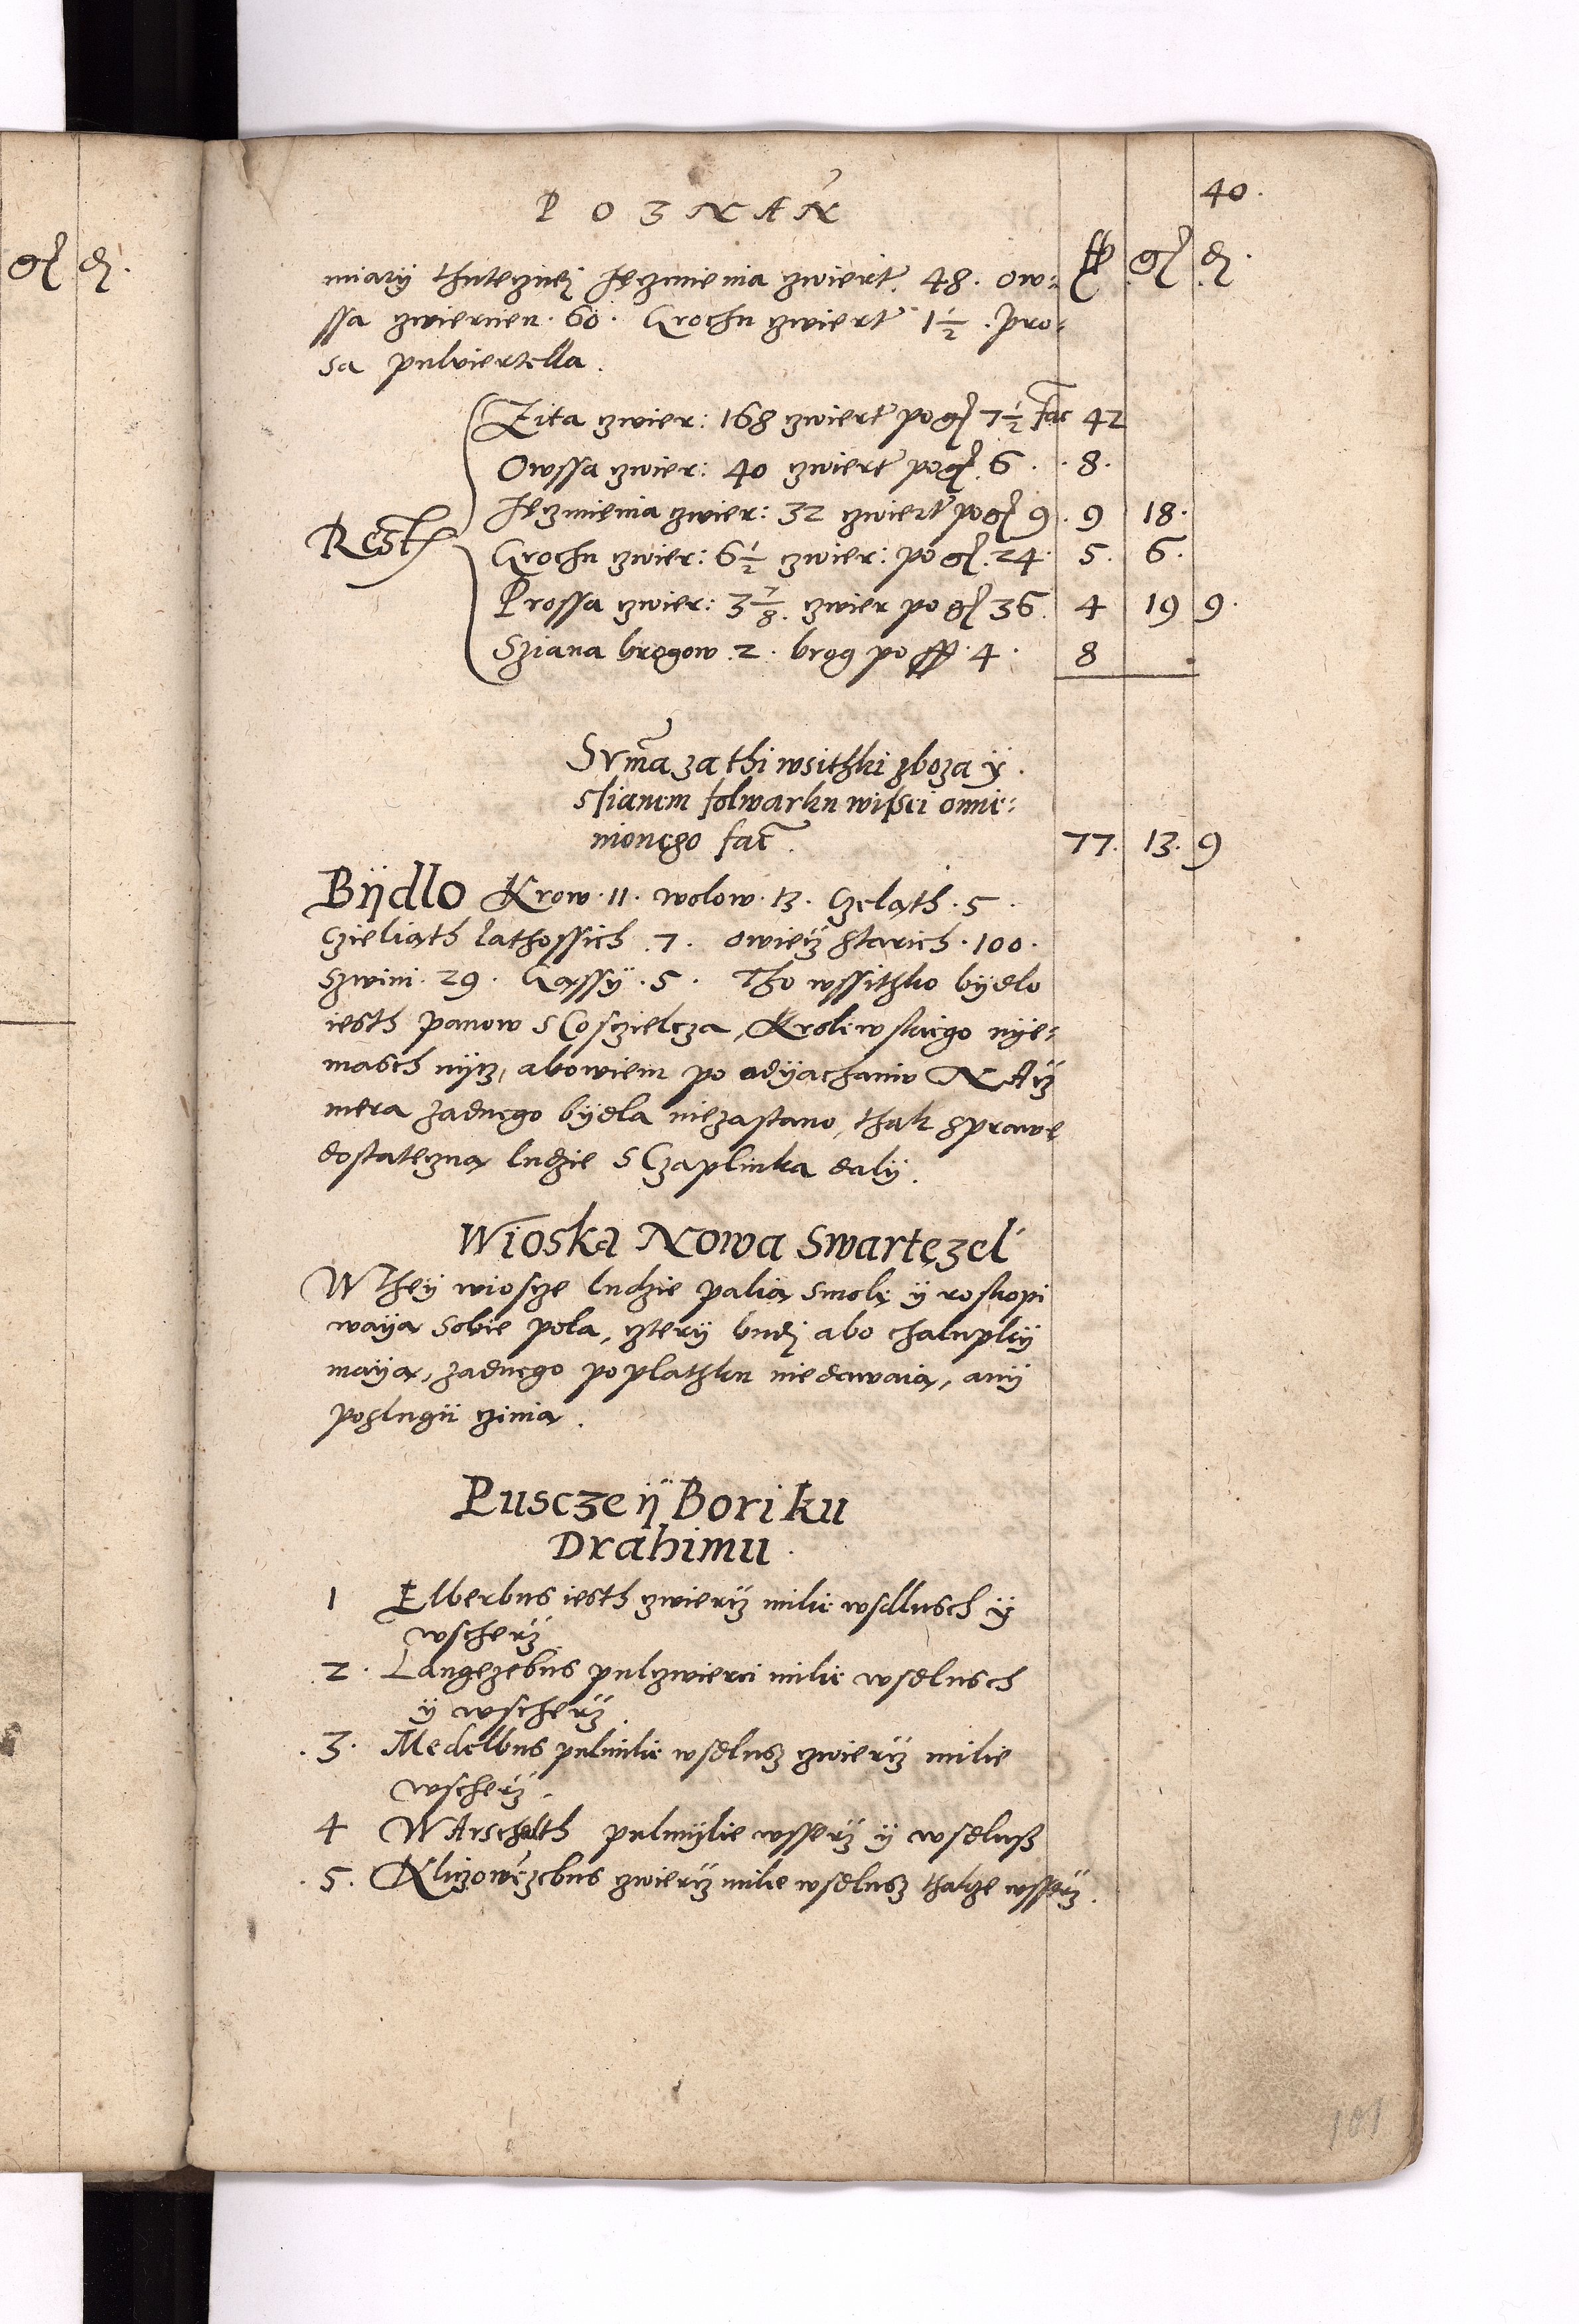 40.
POZNAŃ
fl gr d.
gr d.
miary thuteczneÿ Jęczmienia czwiert. 48. ow:
ssa czwiernen. 60. Grochu czwiert 1½. pro:
sa pulwiertella.
Zita czwier: 168 czwiert po gr 7½ fac 42
Owssa czwier: 40 czwiert po gr 6. 8.
Jęczmienia czwier: 32 czwiert po gr 9. 9 18.
Rest
Grochu czwier: 6½ czwier: po gr. 24. 5. 6.
Prossa czwier: 3⅞. czwier po gr 36. 4 19 9.
Sziana brogow 2. brog po fl. 4. 8
Suma za thi wsithki zboza ÿ
s sianem folwarku wissei omie:
nionego fac. 77. 13. 9
Bÿdlo Krow. 11. wolow. 13. Czeląth. 5.
Czieliąth lathossich 7. owiecz starich. 100.
Szwini. 29. Gąssÿ. 5. Tho wssithko bÿdlo
iesth panow s Cosczielcza, Kroliewskiego nÿe:
masch nÿcz, abowiem po odÿachaniv NAÿ
mera zadnego bÿdla niezastano, thak sprawę
dostateczną ludzie s Czaplinka dalÿ.
Wioska Nowa Swartęzel
W theÿ wiosce ludzie palią smolę ÿ roskopi
waÿą sobie pola, czterÿ budÿ abo chalupkÿ
maÿą, zadnego poplathku niedawaią, anÿ
poslugii czinią.
Puscze ÿ Bori ku
Drahimu.
1 Elberbus iesth czwiercz milie wsdlusch ÿ
wschercz
2. Langezebus pulczwierci milie wsdlusch
ÿ wschercz.
3. Medelbus pulmilie wsdlusz czwiercz milie
wschercz.
4 WArschalth pulmÿlie wssercz ÿ wsdlusz
5. Kliczowezebus czwiercz milie wsdlusz thakze wssercz.
101